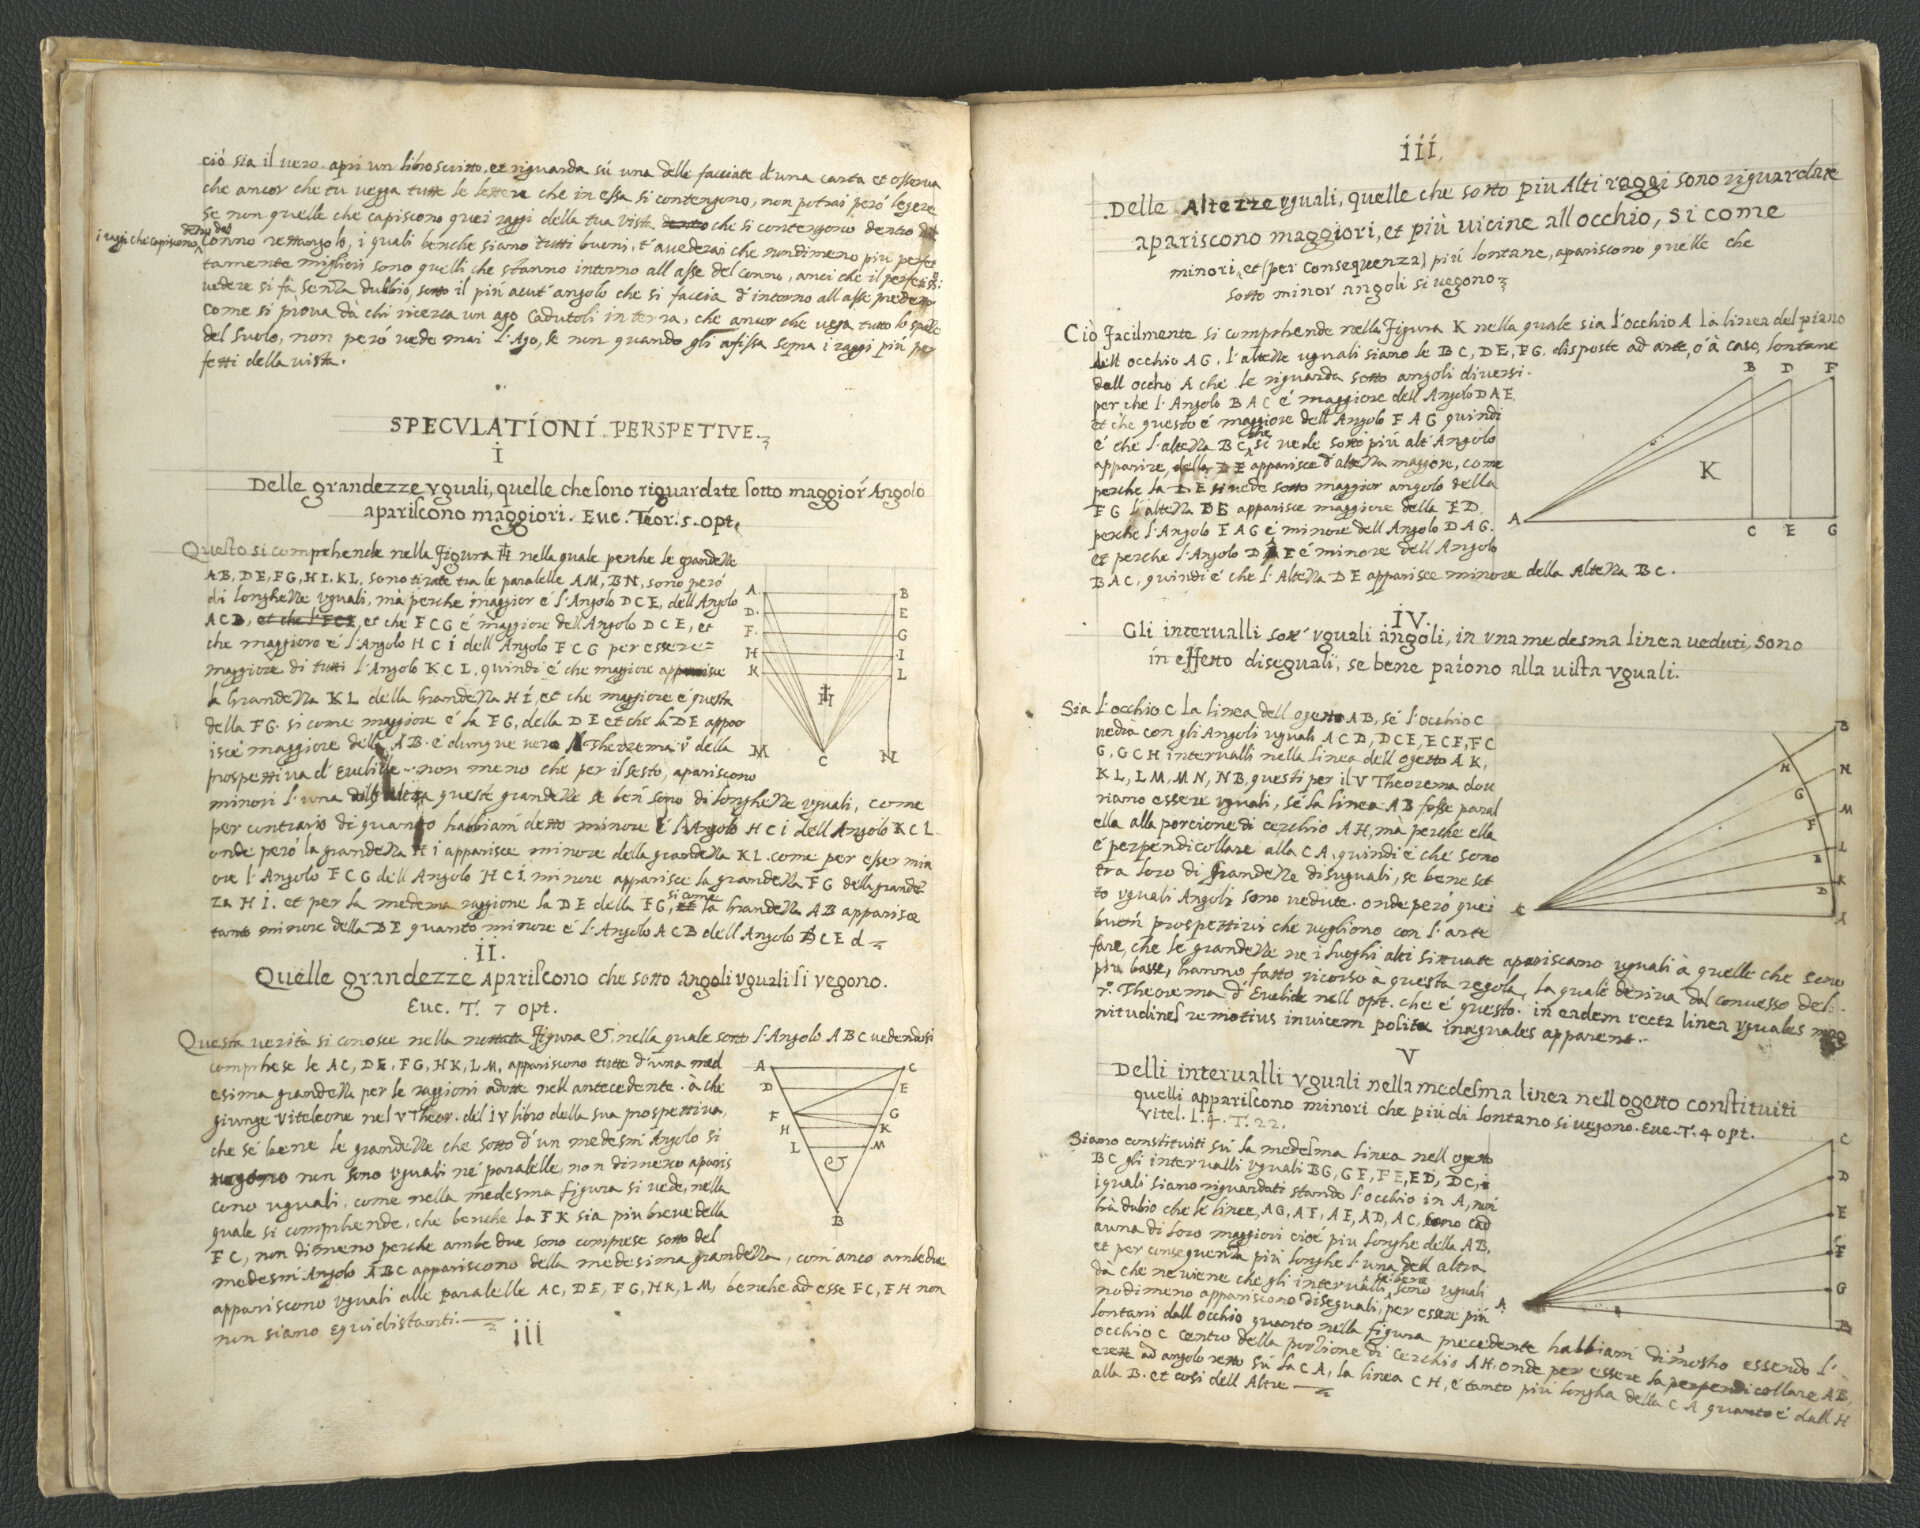 ciò sia il vero. apri un libro scritto. et riguarda sú una delle facciate d'una carta et osserva
che ancor che tu vegga tutte le lettere che in essa si contengono, non potrai peró legere
se non quelle che capiscono quei raggi della tua vista dentro che si contengono dentro del
i raggi che capiscono dentro del
Conno rettangolo, i quali benche siano tutti buoni, t'avederai che nondimeno più perfet
tamente migliori sono quelli che stanno intorno all asse del conno, anci che il perfetto
vedere si fá senza dubbio, sotto il più acut' angolo che si faccia d'intorno all asse predetto
come si prova dà chi ricerca un ago cadutoli in terra, che ancor che vega tutto lo spatio
del suolo, non peró vede mai l'Ago, se non quando gli afissa sopra i raggi più per
fetti della vista.
SPECVLATIONI PERSPETIVE.
i
Delle grandezze vguali, quelle che sono riguardate sotto maggior Angolo
apariscono maggiori. Euc. Teor. 5. opt.
Questo si comprhende nella figura H nella quale perche le grandezze
AB, DE, FG, HI, KL, sono tirate tra le paralelle AM, BN, sono peró
di longhezze vguali, mà perche maggior é l'Angolo DCE, dell'Angolo
ACB, et che l'FCE, et che FCG é maggiore dell'Angolo DCE, et
che maggiore é l'Angolo HCI dell'Angolo FCG per essere
maggiore di tutti l'Angolo KCL, quindi é che maggiore apparisce
la Grandezza KL della Grandezza HI, et che maggiore é questa
della FG. si come maggiore é la FG, della DE et che la DE appar
isce maggiore della AB. é dunque vero il Theorema della
prospettiva d'Euclide non meno che per il sesto, apariscono
minori l'una dell'altra queste grandezze se ben sono di longhezze vguali, come
per contrario di quanto habbiam detto minore é l'Angolo HCI dell Angolo KCL
onde peró la grandezza HI apparisce minore della grandezza KL. come per esser min
ore l'Angolo FCG dell Angolo HCI minore apparisce la grandezza FG della grandez
za HI. et per la medema raggione la DE della FG, si come la Grandezza AB apparisce
tanto minore della DE quanto minore é l'Angolo ACB dell Angolo DCE
A
B
D
E
F
G
H
I
K
L
M
C
N
H
.II.
Quelle grandezze Apariscono che sotto Angoli vguali si vegono.
Euc. T. 7 opt.
Questa verità si conosce nella figura &. nella quale sotto l'Angolo ABC vedendosi
comprhese le AC, DE, FG, HK, LM, appariscono tutte d'una med
esima grandezza per le raggioni adotte nell antecedente. à che
giunge Viteleone nel V Theor. del IV libro della sua prospettiva,
che se bene le grandezze che sotto d'un medesmi Angolo si
vegono non sono vguali ne' paralelle, non dimeno aparis
cono vguali, come nella medesma figura si vede, nella
quale si comprhende, che benche la FK sia piu breve della
FC, non dimeno perche ambe due sono comprese sotto del
medesmi Angolo ABC appariscono della medesima grandezza, com'anco ambedue
appariscono vguali alle paralelle AC, DE, FG, HK, LM, benche ad esse FC, FH non
non siano equidistanti.
A
C
D
E
F
G
H
K
L
M
&
B
iii
iii.
Delle Altezze vguali, quelle che sotto piu Alti raggi sono riguardate
apariscono maggiori, et più vicine all occhio, si come
minori, et (per consequenza) più lontane, apariscono quelle che
sotto minor angoli si vegono
Ciò facilmente si comprhende nella figura K nella quale sia l'occhio A la linea del piano
dell occhio AG. l'altezze vguali siano le BC, DE, FG. disposte ad arte, ò à caso, lontane
dall occhio A che le riguarda sotto angoli diversi.
per che l'Angolo BAC é maggiore dell Angolo DAE
et che questo é maggiore dell Angolo FAG quindi
é che l'altezza BC, che si vede sotto più alt' Angolo
apparire, della DE apparisce d'altezza maggiore, come
perche la D.E si vede sotto maggior angolo della
FG l'altezza DE apparisce maggiore della FD.
perche l'Angolo FAG é minore dell Angolo DAG.
et perche l'Angolo DAE é minore dell Angolo
BAC, quindi é che l'Altezza DE apparisce minore della Altezza BC.
B
D
F
K
A
C
E
G
IV.
Gli intervalli sott' vguali angoli, in vna medesma linea veduti, sono
in effetto diseguali, se bene paiono alla vista vguali.
Sia l'occhio C la linea dell ogetto AB, sé l'occhio C
vedrà con gli Angoli vguali ACD, DCE, ECF, FC
G, GCH intervalli nella linea dell ogetto AK,
KL, LM, MN, NB, questi per il V Theorema dov
riano essere vguali, sé la linea AB fosse paral
ella alla porcione di cerchio AH, mà perche ella
é perpendicollare alla CA, quindi é che sono
tra loro di grandezze disuguali, se bene sot
to vguali Angoli sono vedute. onde peró quei
buoni prospettivi che vogliono con l'arte
fare, che le grandezze ne i luoghi alti sittuate apariscano vguali à quelle che sono
piu basse, hanno fatto ricorso à questa regola, la quale deriva dal convesso del
Theorema d'Euclide nell opt. che é questo. in eadem recta linea vguales mag
nitudines remotius invicem posita inaquales apparent.
B
N
H
G
M
F
L
E
K
D
C
A
V
Delli intervalli vguali nella medesma linea nell ogetto constituiti
quelli appariscono minori che più di lontano si vegono. Euc. T. 4 opt.
Vitel. l. 4. T. 22.
Siano constituiti sú la medesma linea nell ogetto
BC gli intervalli vguali BG, GF, FE, ED, DC, i
iquali siano riguardati stando l'occhio in A, non
hà dubio che le linee, AG, AF, AE, AD, AC, sono cad
auna di loro maggiori cioé piu longhe della AB,
et per consequenza più longhe l'una dell altra
dà che ne viene che gli intervalli, se bene sono vguali
nodimeno appariscono diseguali, per essere più
lontani dall occhio quanto nella figura precedente habbiam dimostro essendo l'
occhio C centro della portione di cerchio AH. onde per essere la perpendicollare AB,
erett ad angolo retto sú la CA, la linea CH, é tanto più longha della CA quanto é dall H
alla B. et cosi dell Altre
C
D
E
F
G
A
B